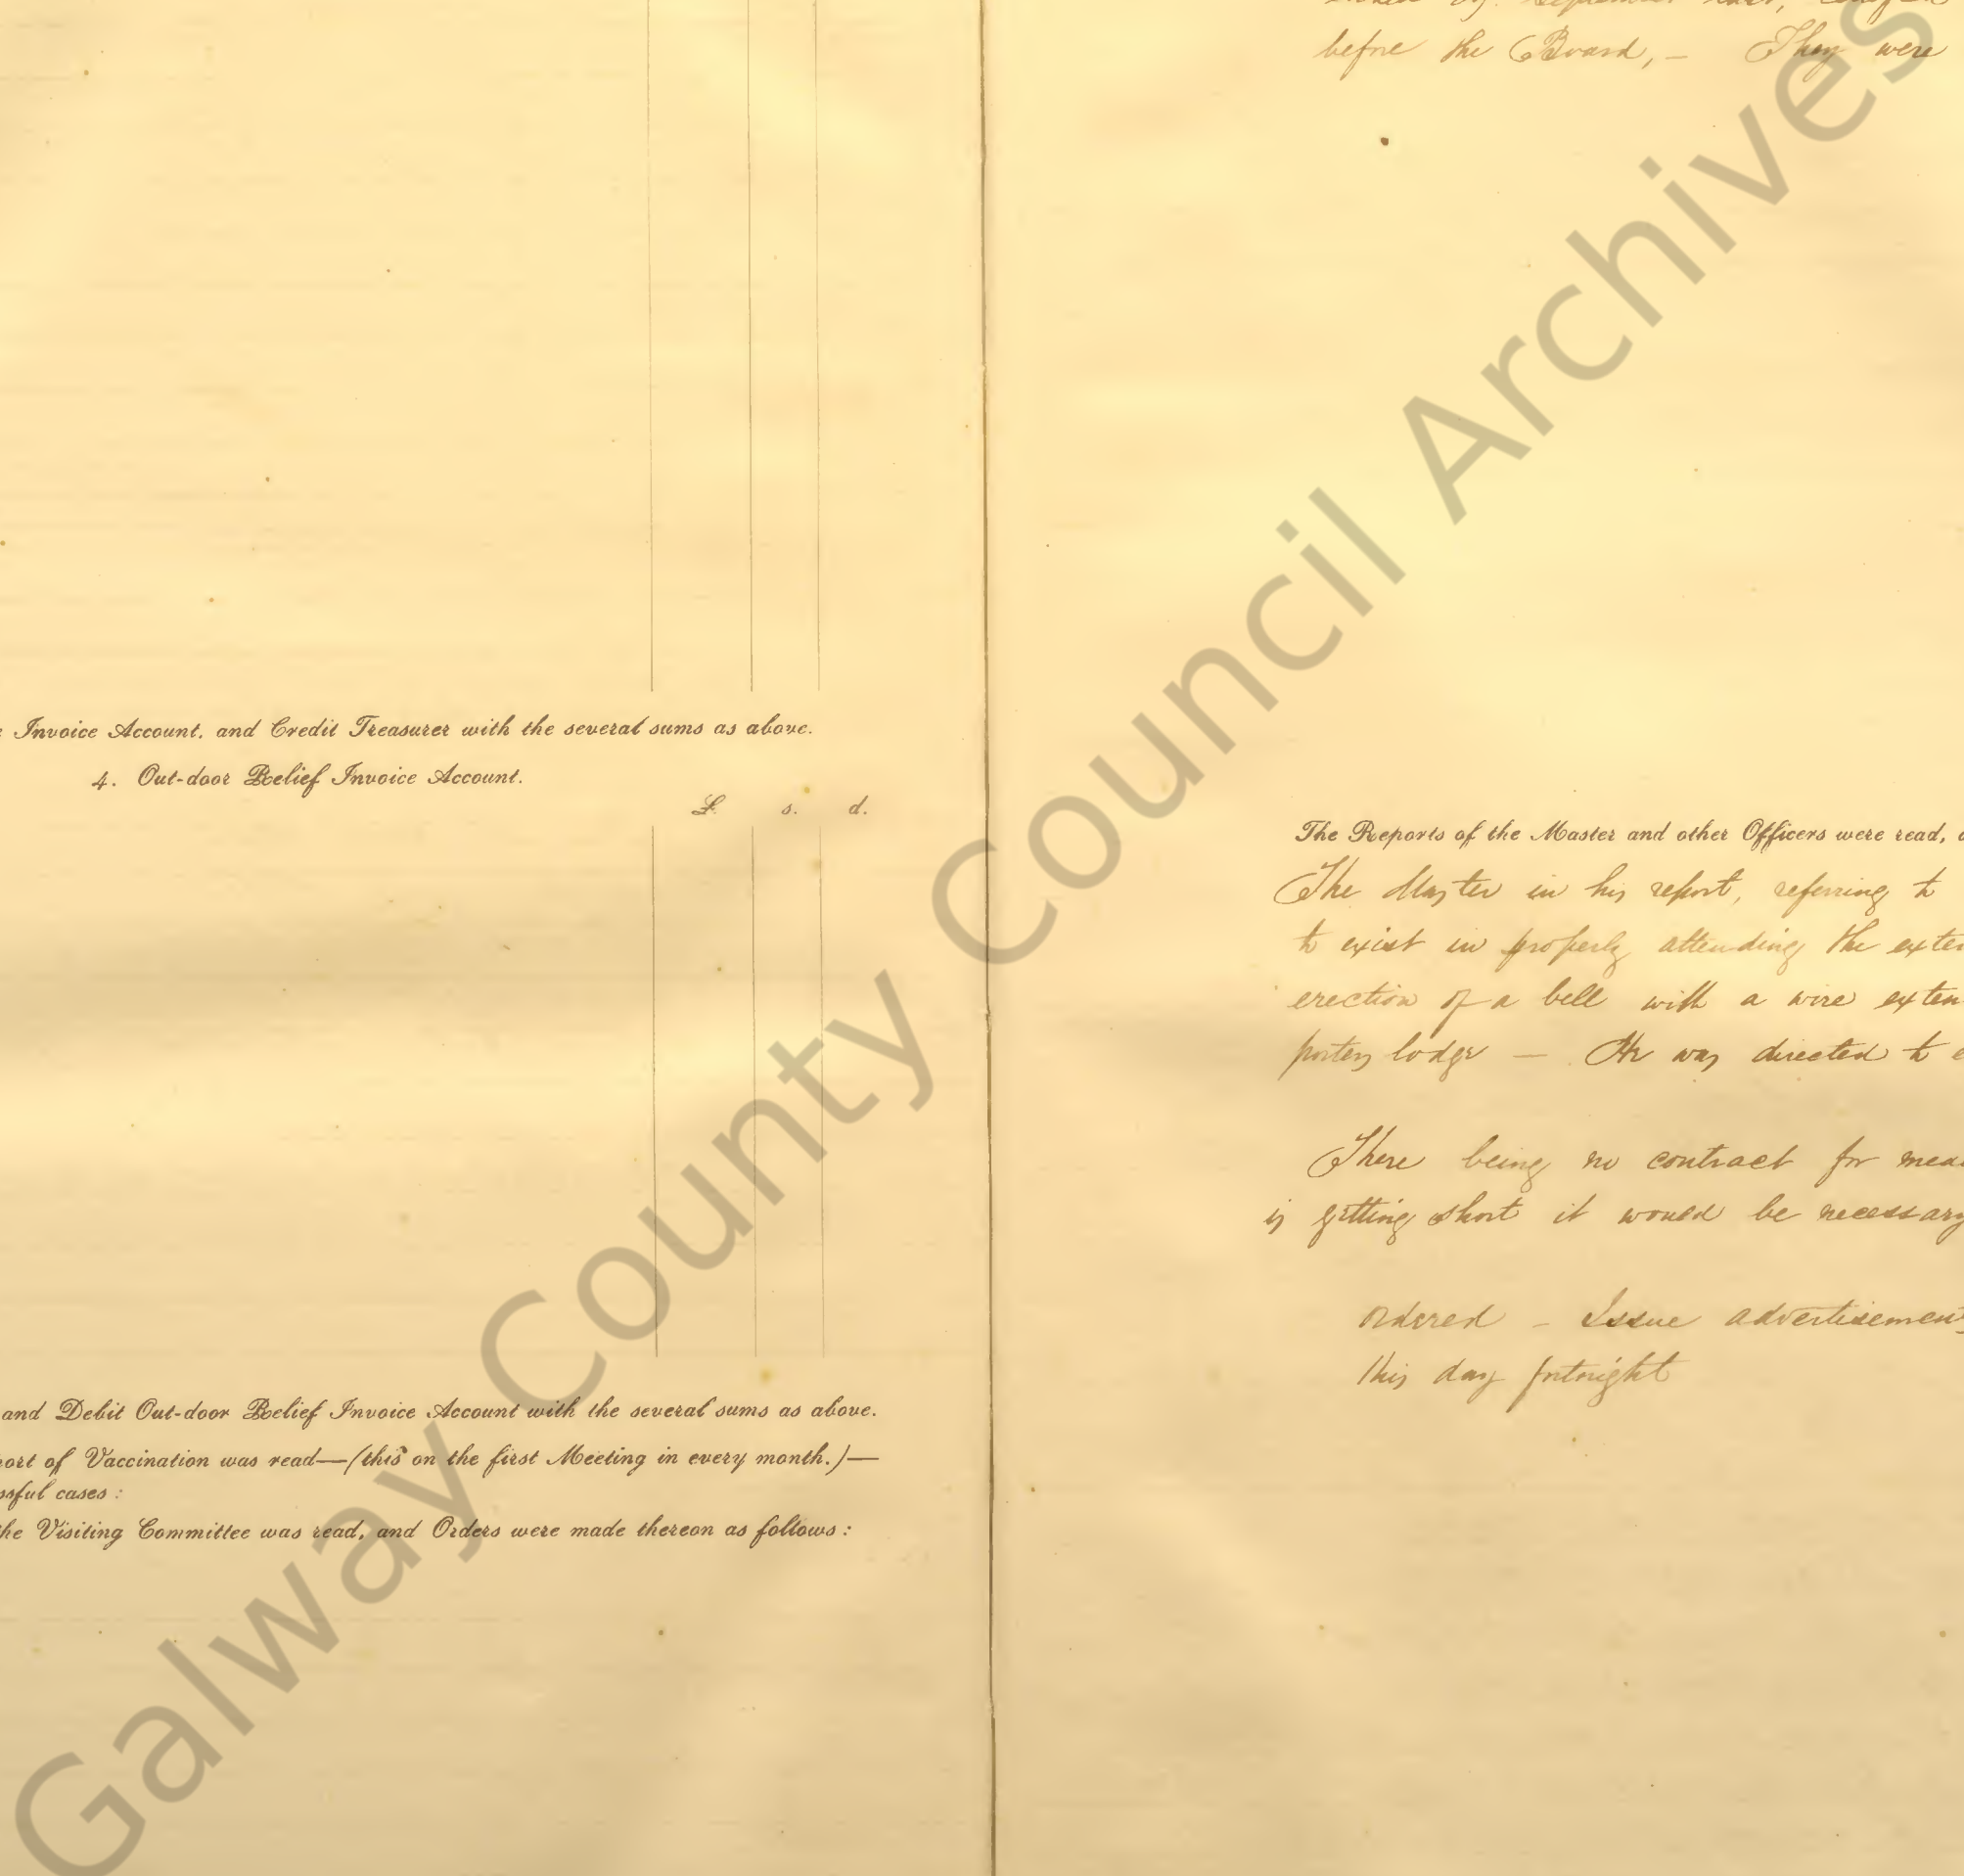 Invoice Account. and Credit Treasurer with the several sums as above.
4. Out-door Relief Invoice Account.
£. s. d.
and Debit Out-door Relief Invoice Account with the several sums as above.
of Vaccination was read—(this on the first Meeting in every month.)—
cases :
Visiting Committee was read, and Orders were made thereon as follows :
before the Board, — They were
The Reports of the Master and other Officers were read,
The Master in his report, referring to
to exist in properly attending the
erection of a bell with a wire
porters lodge — He was directed to
There being no contract for
is getting short it would be necessary
Ordered – Issue advertisement
this day fortnight
Galway County Council Archives